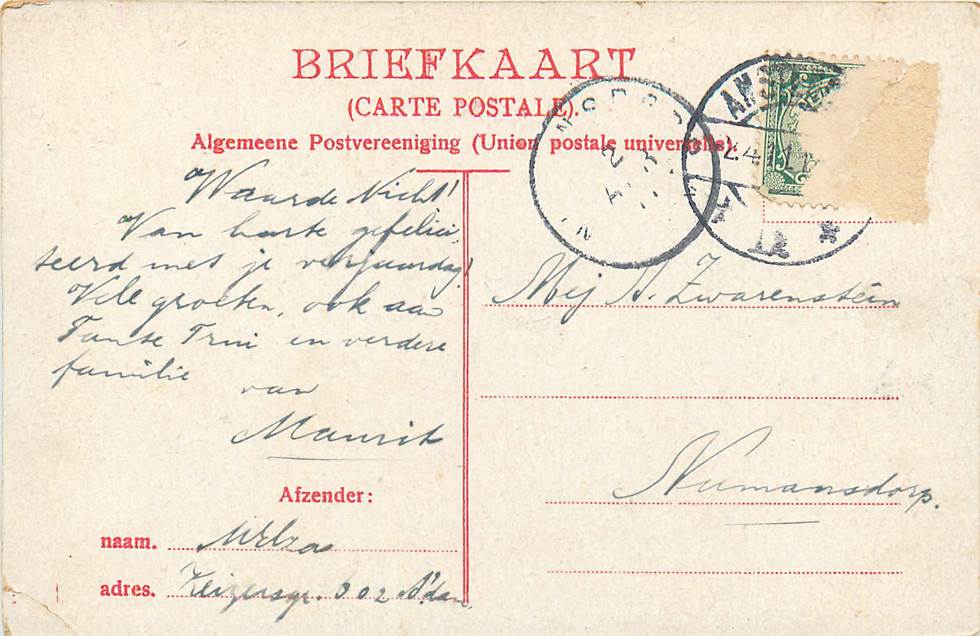 BRIEFKAART
(CARTE POSTALE).
Algemeene Postvereeniging (Union postale universelle).
Waarde Nicht!
Van harte gefelici-
teerd met je verjaardag!
Vele groeten, ook aan
Tante Trui en verdere
familie van
Maurit
Afzender:
naam.
adres. Keizersgr. 602 A'dam
Mej A. Zwarenstein
Numansdorp.